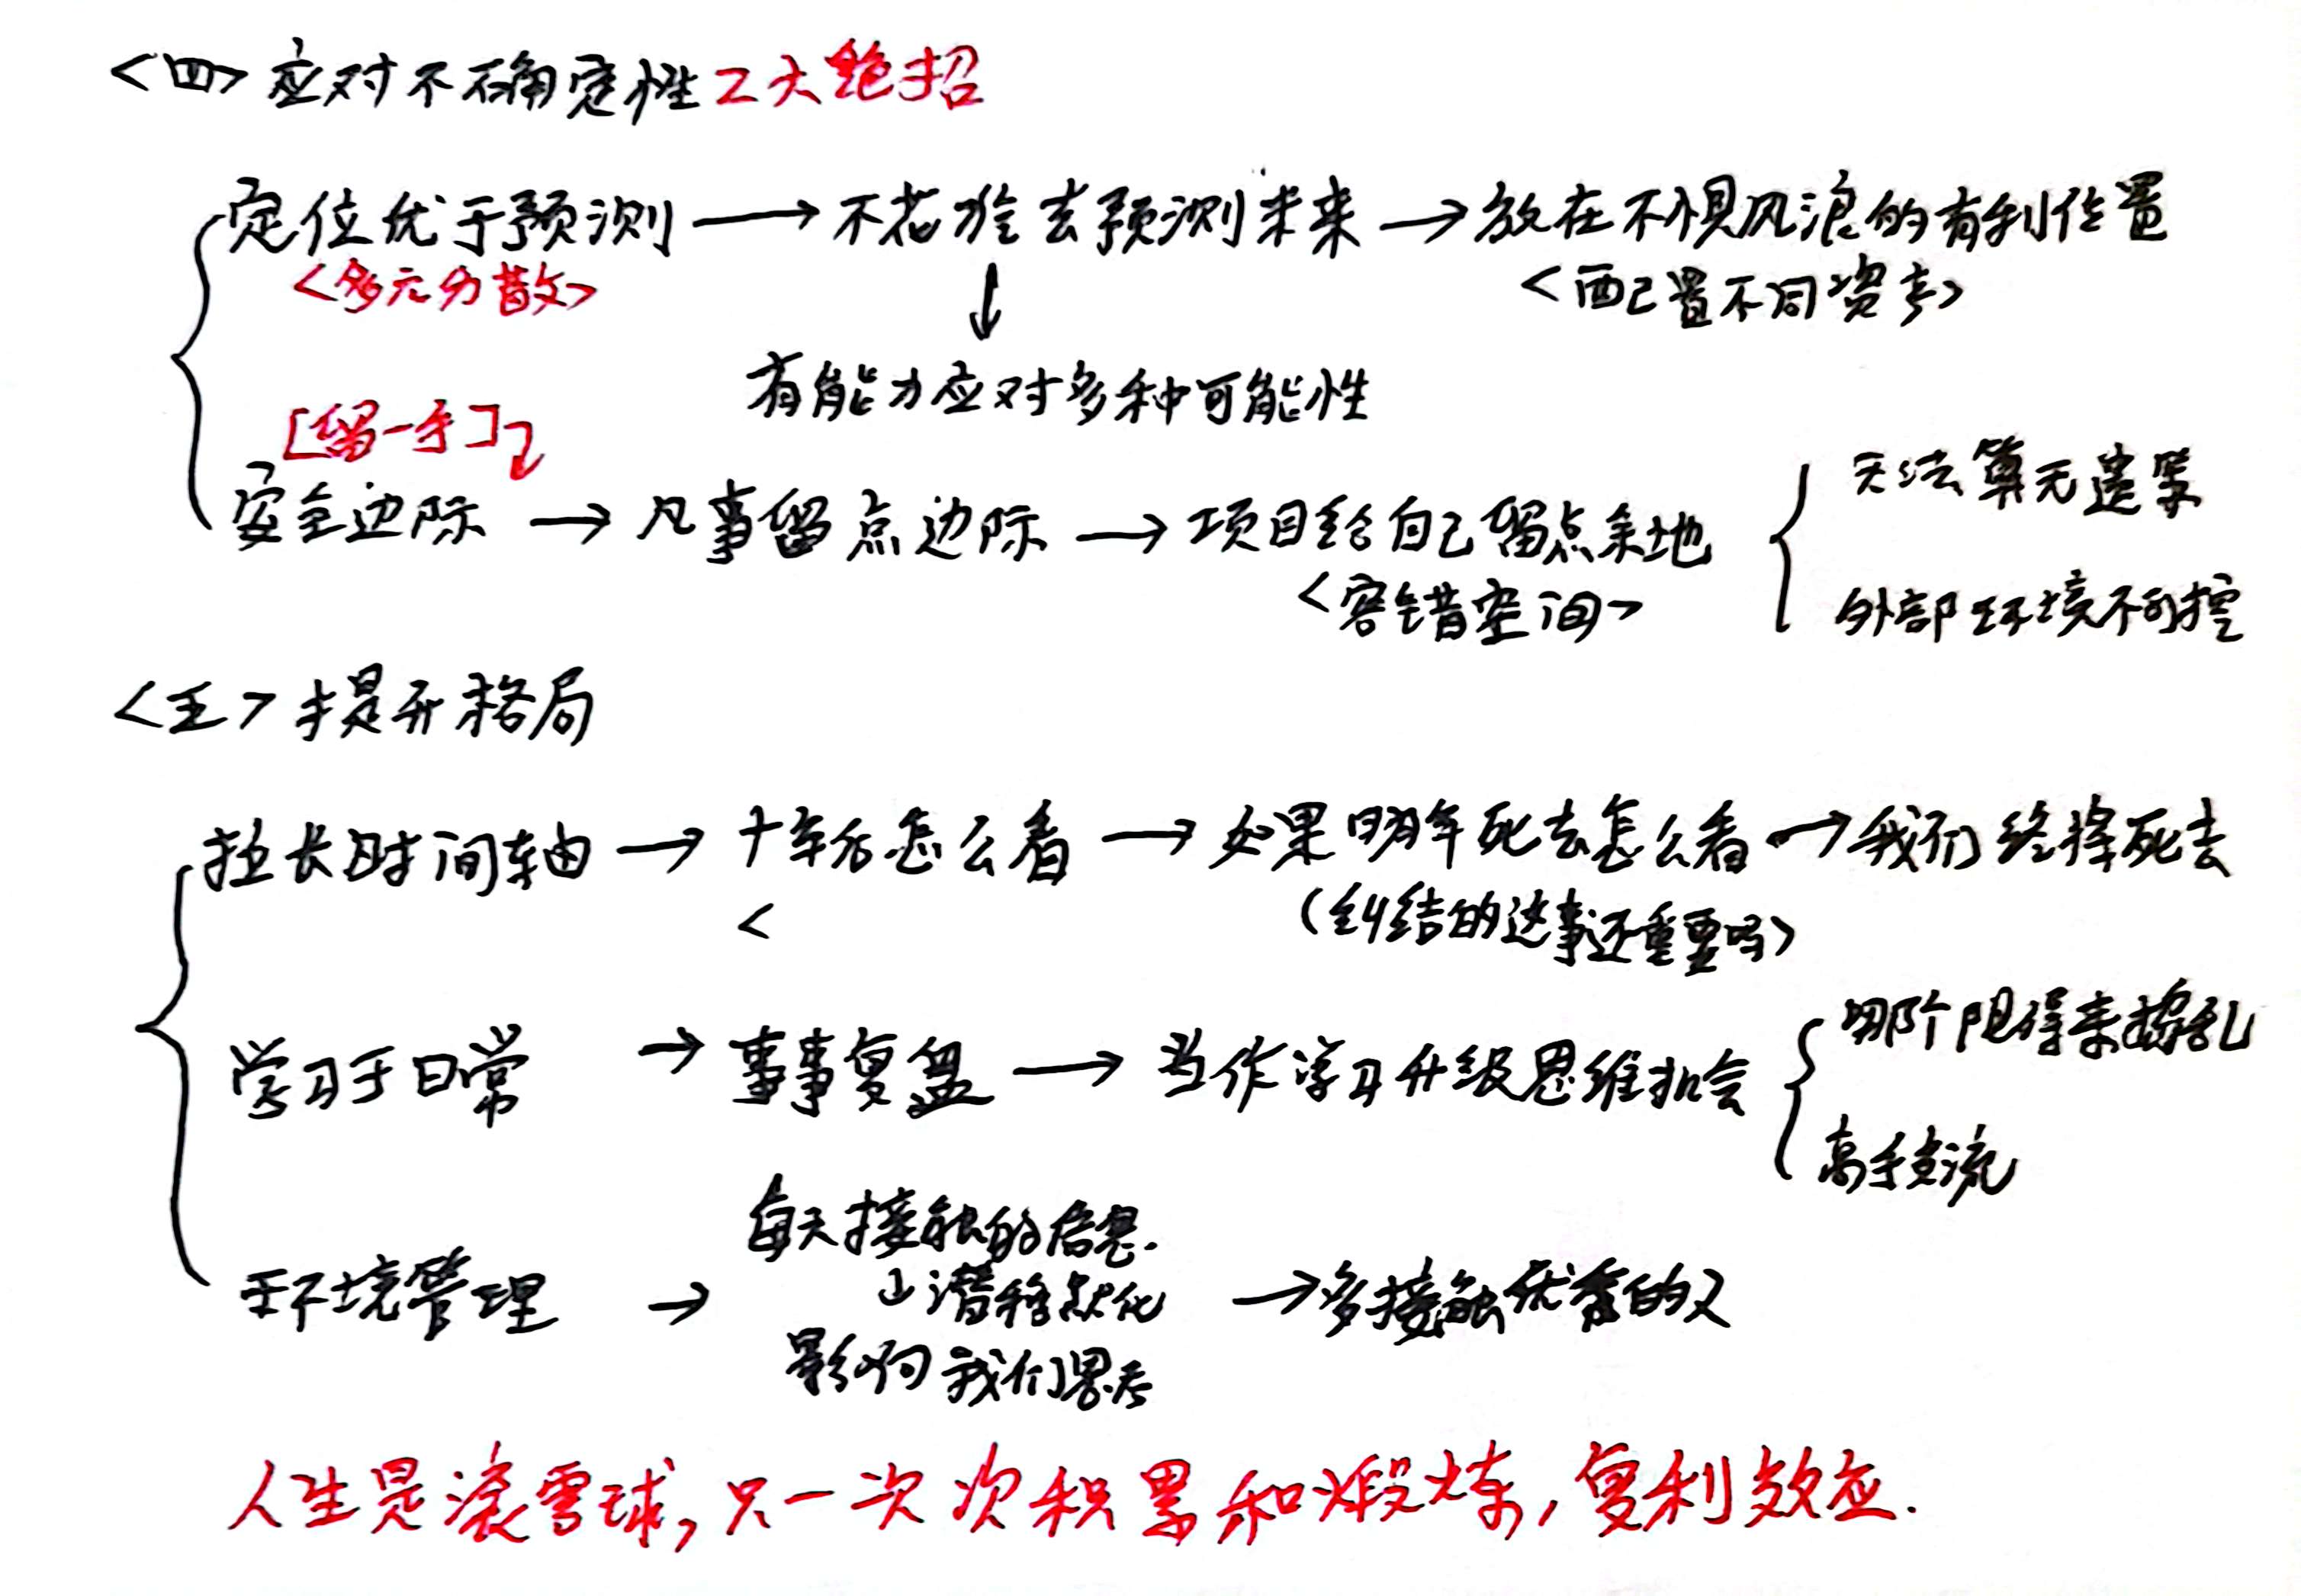 <四> 应对不确定性2大绝招
定位优于预测 → 不花 去预测未来 → 放在不惧风浪的有利位置
<多元分散>
<配置不同资产>
↓
有能力应对多种可能性
[留一手]
安全边际 → 凡事留点边际 → 项目给自己留点余地
<容错空间>
无法算无遗策
外部环境不可控
<五> 提升格局
拉长时间轴 → 十年后怎么看 → 如果明年死去怎么看 → 我们终将死去
<
(纠结的这事还重要吗>
学习于日常 → 事事复盘 → 当作学习升级思维机会
哪个阻碍来捣乱
高手交流
环境管理 → 每天接触的信息.
↓潜移默化
影响我们思考
→多接触优秀的人
人生是滚雪球,只一次次积累和煅炼,复利效应.